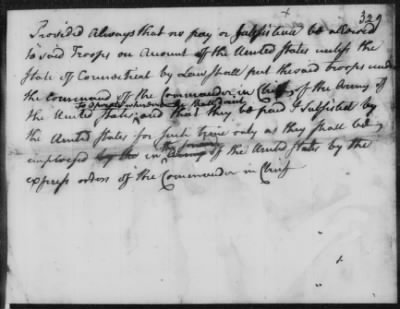 329
Provided Always that no pay or Subsistence be allowed
to said Troops on Account of the United States unless the
State of Connecticut by Law shall put the said troops under
the command of the Commander in Chief of the Army of
to operate wherever he shall
the United States and that they be paid & subsisted by
the United States for such time only as they shall be
the service
employed by the in Army of the United States by the
express orders of the Commander in Chief